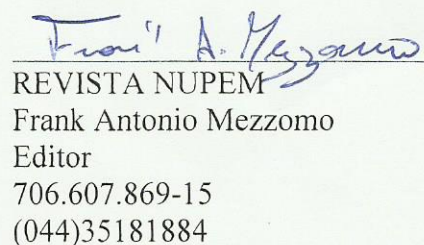 Frank A. Mezzomo
REVISTA NUPEM
Frank Antonio Mezzomo
Editor
706.607.869-15
(044)35181884